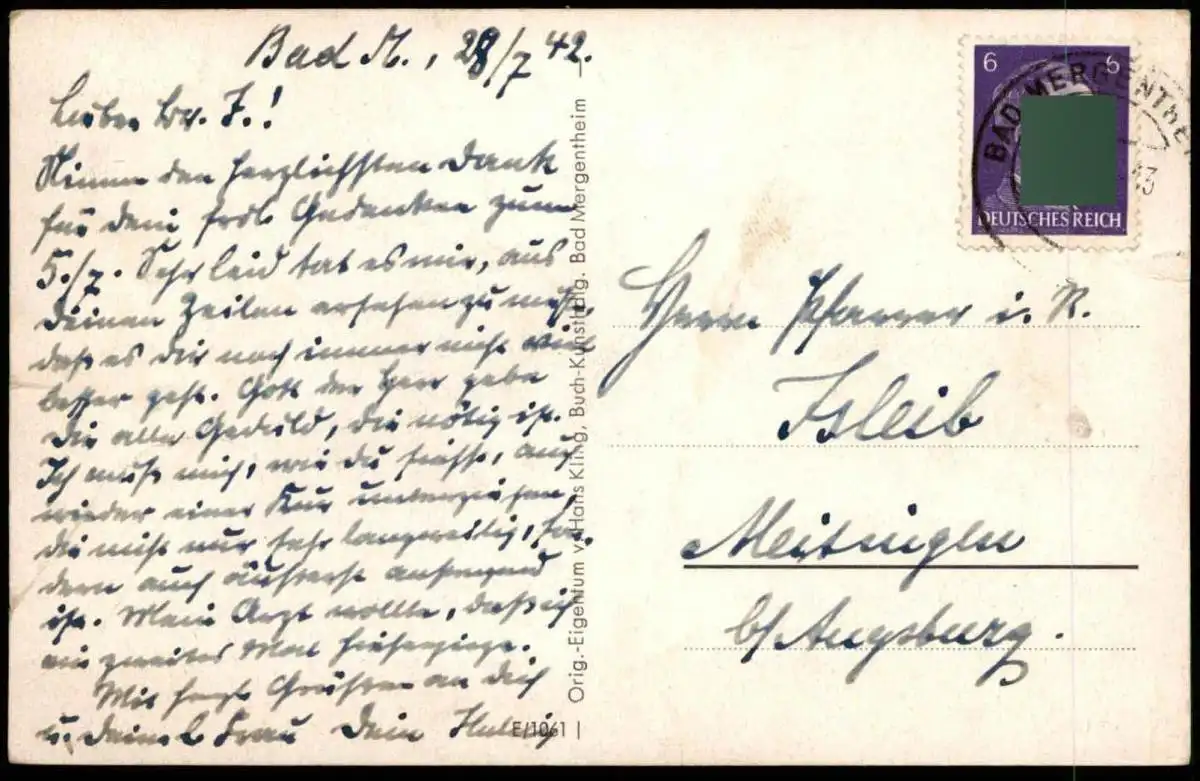 Bad M., 28/7 42.
Lieber Br. J.!
Nimm den herzlichsten Dank
für dein frdl. Gedenken zum
5./7. Sehr leid tat es mir, aus
deinen Zeilen ersehen zu müss.,
daß es dir noch immer nicht viel
besser geht. Gott der Herr gebe
dir alle Geduld, die nötig ist.
Ich muß mich, wie du siehst, auch
wieder einer Kur unterziehen,
die nicht nur sehr langweilig, son-
dern auch äußerst anstrengend
ist. Mein Arzt wollte, daß ich
ein zweites Mal hieherginge.
Mit herzl. Grüßen an dich
u. deine l. Frau Dein
Orig.-Eigentum v. Hans Kling, Buch-Kunsthdlg. Bad Mergentheim
E/1061
6 6
DEUTSCHES REICH
BAD MERGENTHEIM
Herrn Pfarrer i. R.
Isleib
Meitingen
b/Augsburg.